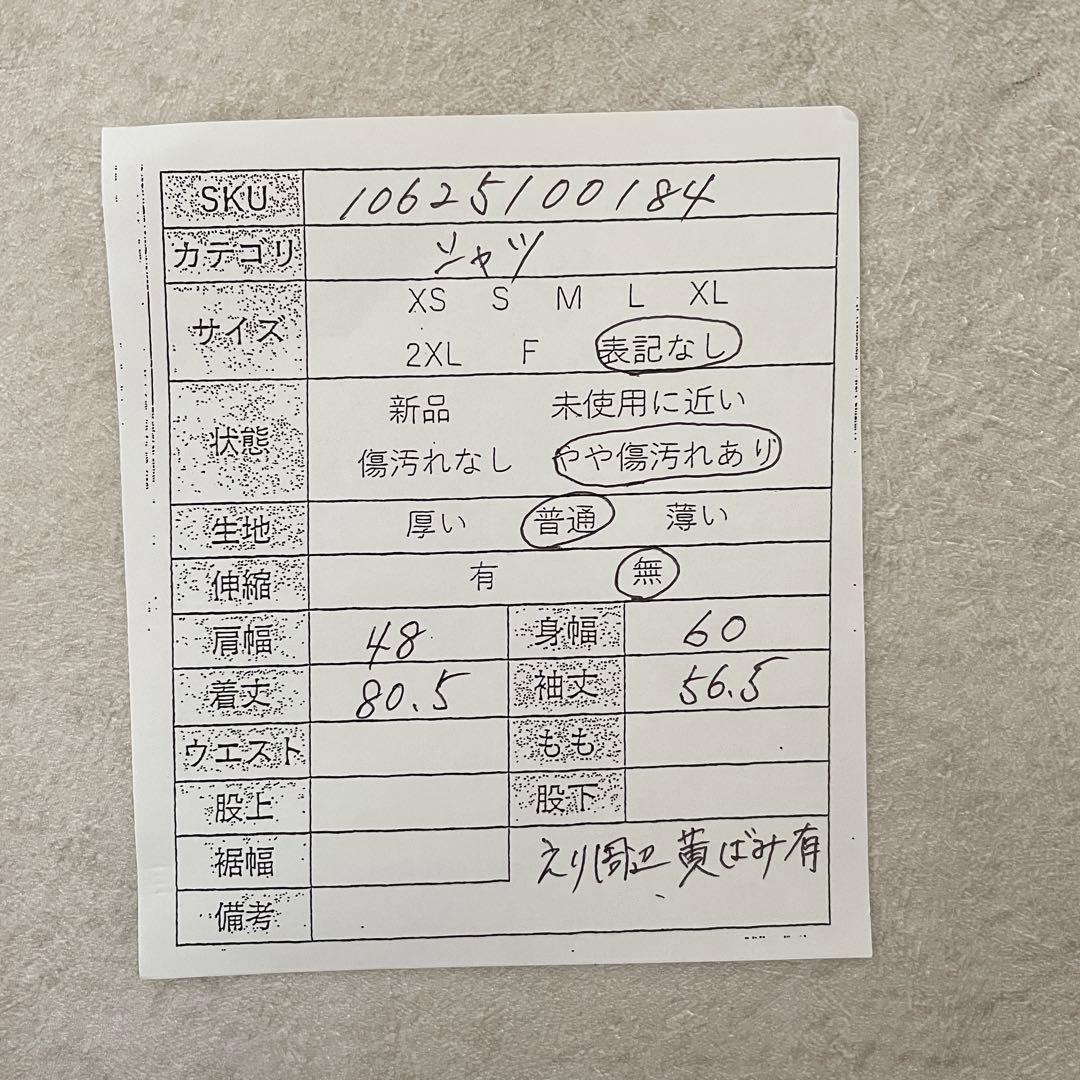 SKU 10625100184
カテゴリ シャツ
サイズ XS S M L XL
2XL F 表記なし
状態 新品 未使用に近い
傷汚れなし やや傷汚れあり
生地 厚い 普通 薄い
伸縮 有 無
肩幅 48 身幅 60
着丈 80.5 袖丈 56.5
ウエスト もも
股上 股下
裾幅 えり周辺黄ばみ有
備考